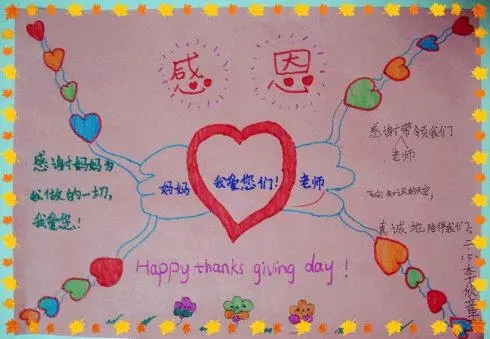 感恩
感谢妈妈为
我做的一切,
我爱您!
妈妈
我爱您们!
老师
感谢带领我们
老师
飞向知识的天空,
真诚地陪伴我们。
Happy thanks giving day!
二